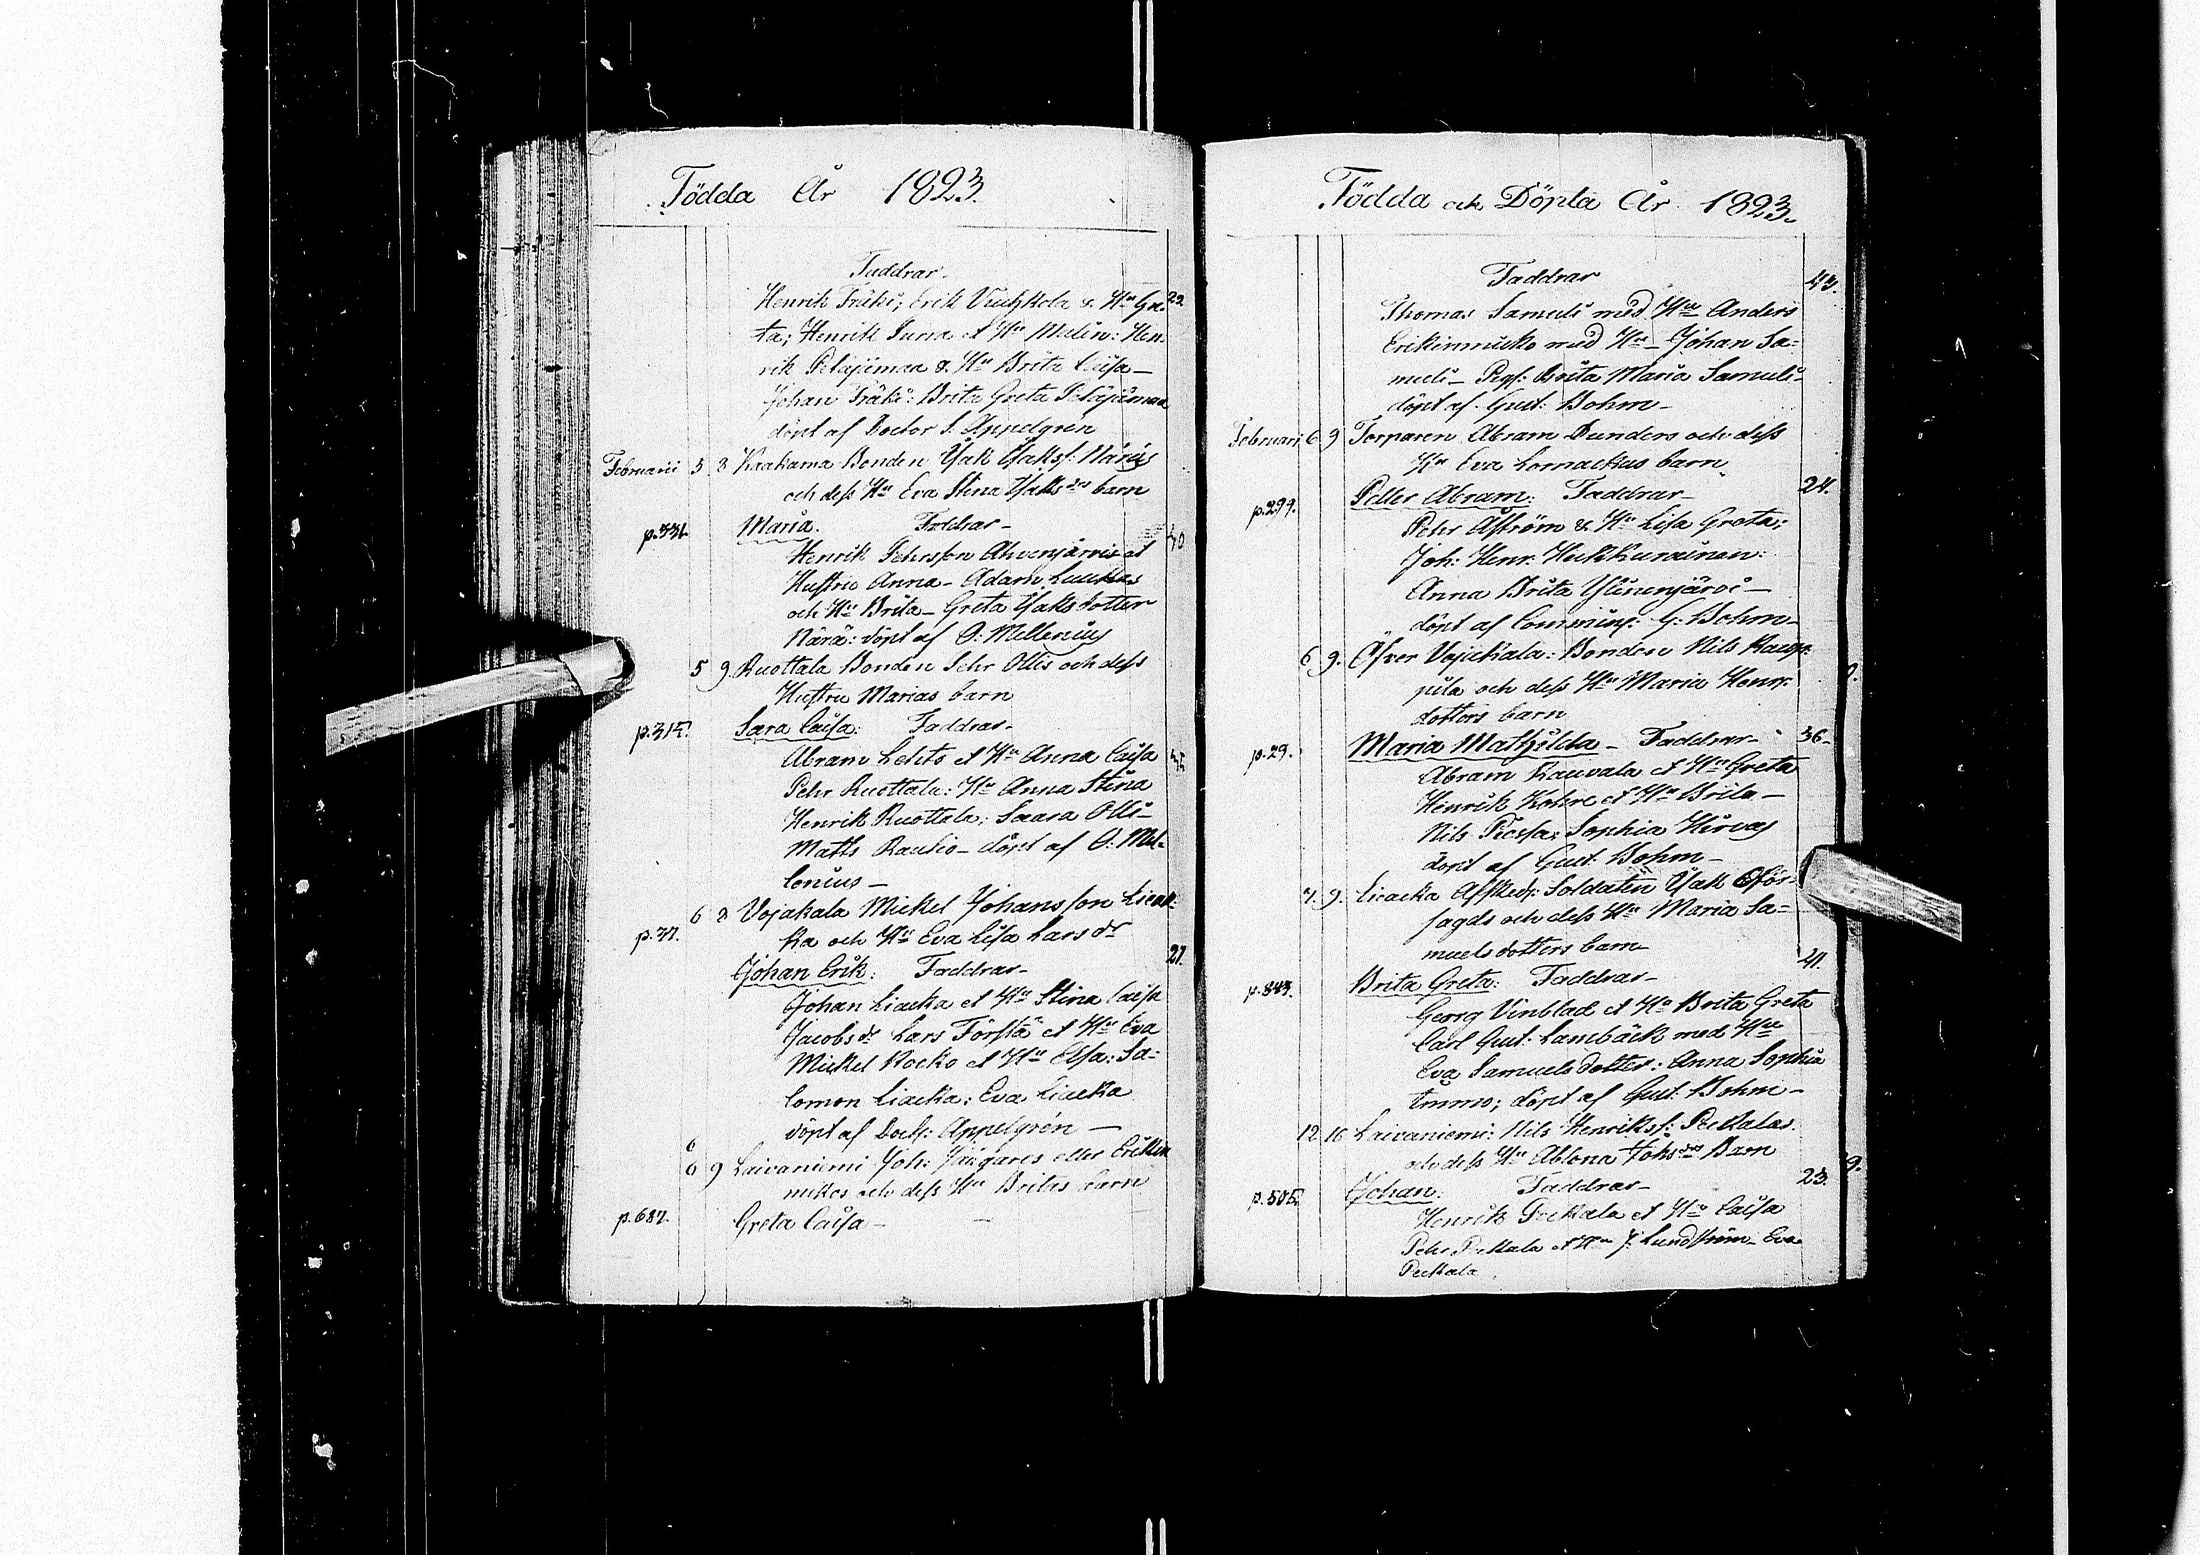 Födda År 1823.
Faddrar.
Henrik Träki; Erik Vuokkola & Hu Gre- 22.
ta; Henrik Juria et Hu Malin: Hen-
rik Pelajämaa & Hu Brita Caisa —
Johan Träki: Brita Greta Pelajämaa
döpt af Doctor J. Appelgren
Februarii 5 8 Kaakama Bonden Isak Isakss: Näräs
och dess Hu Eva Stina Isaksdrs barn
p.331. Maria. Faddrar — 40
Henrik Pehrsson Ahvenjärvi et
Hustru Anna — Adam Luukas
och Hu Brita — Greta Isaksdotter
Närä: döpt af O: Mellenius
5 9. Ruottala Bonden Pehr Ollis och dess
Hustru Marias barn
p.315. Sara Caisa: Faddrar —
Abram Lehto et Hu Anna Caisa
Pehr Ruottala: Hu Anna Stina
Henrik Ruottala: Saara Olli —
Matts Rautio — döpt af O: Mel-
lenius —
6 8 Vojakala Mickel Johansson Liak-
p.37. ka och Hu Eva Lisa Larsdr
Johan Erik: Faddrar — 27.
Johan Liacka et Hu Stina Caisa
Jacobsdr Lars Förstä et Hu Eva
Mickel Kocko et Hu Elsa: Sa-
lomon Liacka: Eva Liacka
döpt af Doct: Appelgrén —
6
6 9 Laivaniemi Joh: Jungares eller Erikin
mikos och dess Hu Britas barn
p.687. Greta Caisa —
Födda och Döpta År 1823.
Faddrar 43.
Thomas Samuli med Hu Anders
Erikinmikko med Hu — Johan Sa-
muli — Pigs: Brita Maria Samuli —
döpt af Gust: Bohm —
Februarii 6 9 Torparen Abram Dunders och dess
Hu Eva Lomackas barn
p.299. Petter Abram: Faddrar — 24.
Pehr Åström & Hu Lisa Greta;
Joh: Henr: Heikkurainen:
Anna Brita Ylinenjärvi —
döpt af Comminis: G: Bohm —
6 9. Öfver Vojakala: Bonden Nils Kaup-
pila och dess Hu Maria Henr:
dotters barn
p.29. Maria Mathilda — Faddrar — 36 —
Abram Rauvala et Hu Greta
Henrik Kohre et Hu Brita —
Nils Piossa: Sophia Hirvas
döpt af Gust: Bohm —
7. 9. Liacka Afsked: Soldaten Isak Oför-
sagds och dess Hu Maria Sa-
muelsdotters barn
p.843. Brita Greta: Faddrar — 41.
Georg Vinblad et Hu Brita Greta
Carl Gust: Lambäck med Hu
Eva Samuelsdotter: Anna Sophia
Immo; döpt af Gust: Bohm —
12 16 Laivaniemi: Nils Henrikss: Peckalas
och dess Hu Ablona Johsdrs Barn
p.505. Johan: Faddrar — 23.
Henrik Peckala et Hu Caisa
Pehr Peckala et Hu J: Lundström — Eva
Peckala